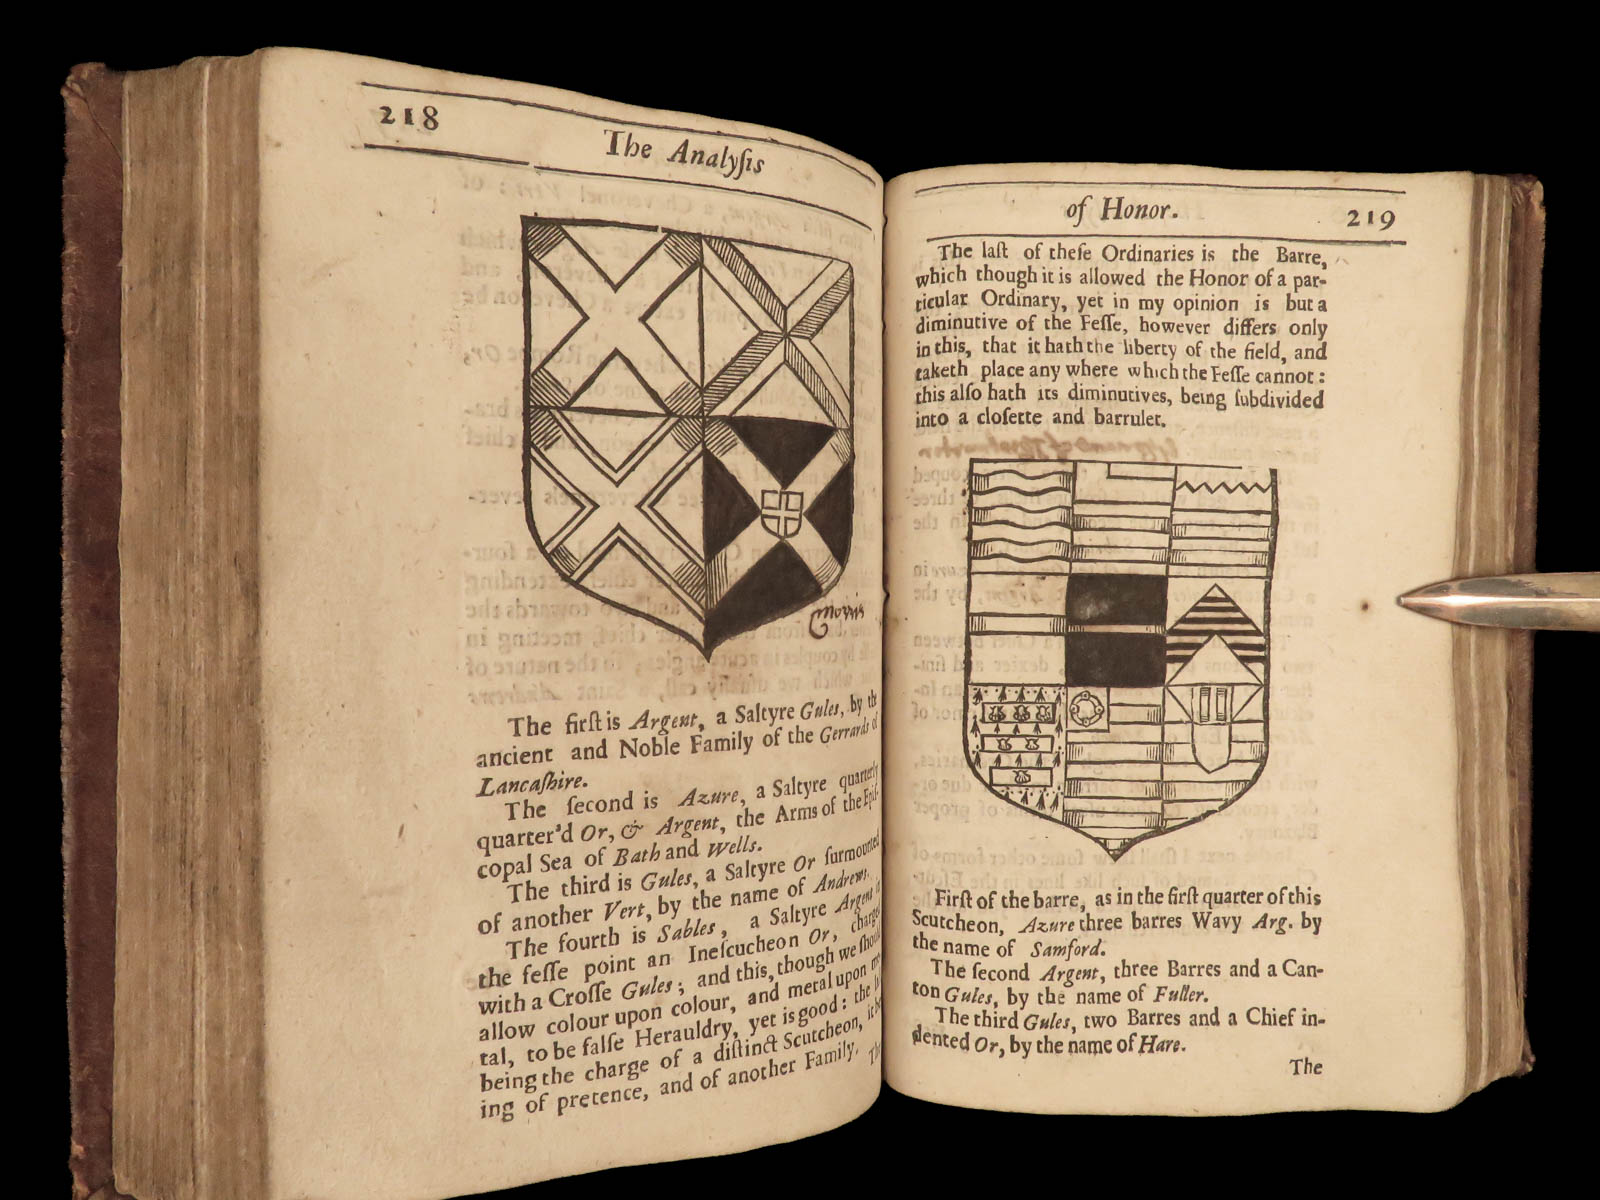 218
The Analyſis
Morris
The firſt is Argent, a Saltyre Gules, by the
ancient and Noble Family of the Gerrards of
Lancaſhire.
The ſecond is Azure, a Saltyre quarterly
quarter'd Or, & Argent, the Arms of the Epiſ-
copal Sea of Bath and Wells.
The third is Gules, a Saltyre Or ſurmounted
of another Vert, by the name of Andrews.
The fourth is Sables, a Saltyre Argent
the feſſe point an Ineſcucheon Or, charged
with a Croſſe Gules; and this, though we ſhould
allow colour upon colour, and metal upon
tal, to be falſe Herauldry, yet is good: the
being the charge of a diſtinct Scutcheon, it
ing of pretence, and of another Family. The
of Honor.
219
The laſt of theſe Ordinaries is the Barre,
which though it is allowed the Honor of a par-
ticular Ordinary, yet in my opinion is but a
diminutive of the Feſſe, however differs only
in this, that it hath the liberty of the field, and
taketh place any where which the Feſſe cannot:
this alſo hath its diminutives, being ſubdivided
into a cloſette and barrulet.
Firſt of the barre, as in the firſt quarter of this
Scutcheon, Azure three barres Wavy Arg. by
the name of Samford.
The ſecond Argent, three Barres and a Can-
ton Gules, by the name of Fuller.
The third Gules, two Barres and a Chief in-
dented Or, by the name of Hare.
The